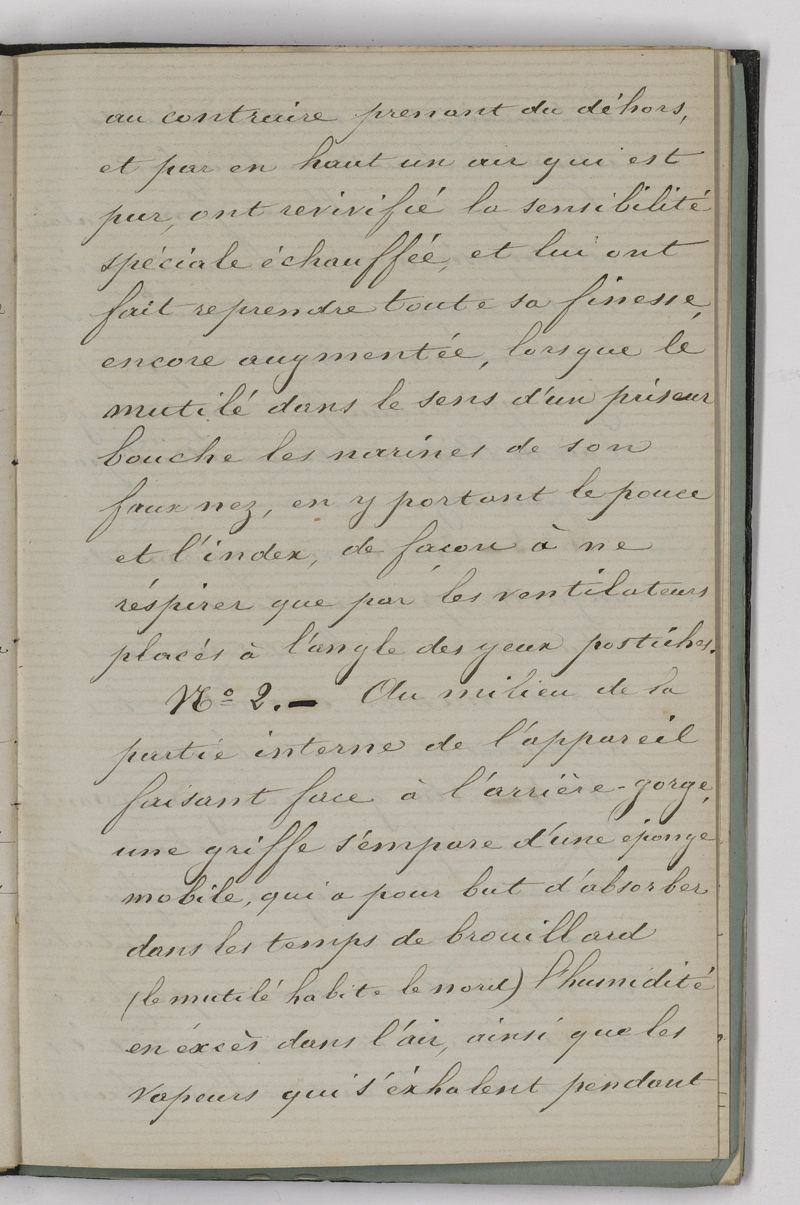 au contraire prenant du déhors,
et par en haut un air qui est
pur, ont revivifié la sensibilité
spéciale échauffée, et lui ont
fait reprendre toute sa finesse,
encore augmentée, lorsque le
mutilé dans le sens d'un priseur
bouche les narines de son
faux nez, en y portant le pouce
et l'index, de facon à ne
réspirer que par les ventilateurs
placés à l'angle des yeux postiches.
No 2. — Au milieu de sa
partie interne de l'appareil
faisant face à l'arrière-gorge,
une griffe s'empare d'une éponge
mobile, qui a pour but d'absorber
dans les temps de brouillard
(le mutilé habite le nord) l'humidité
en éxcès dans l'air, ainsi que les
vapeurs qui s'éxhalent pendant